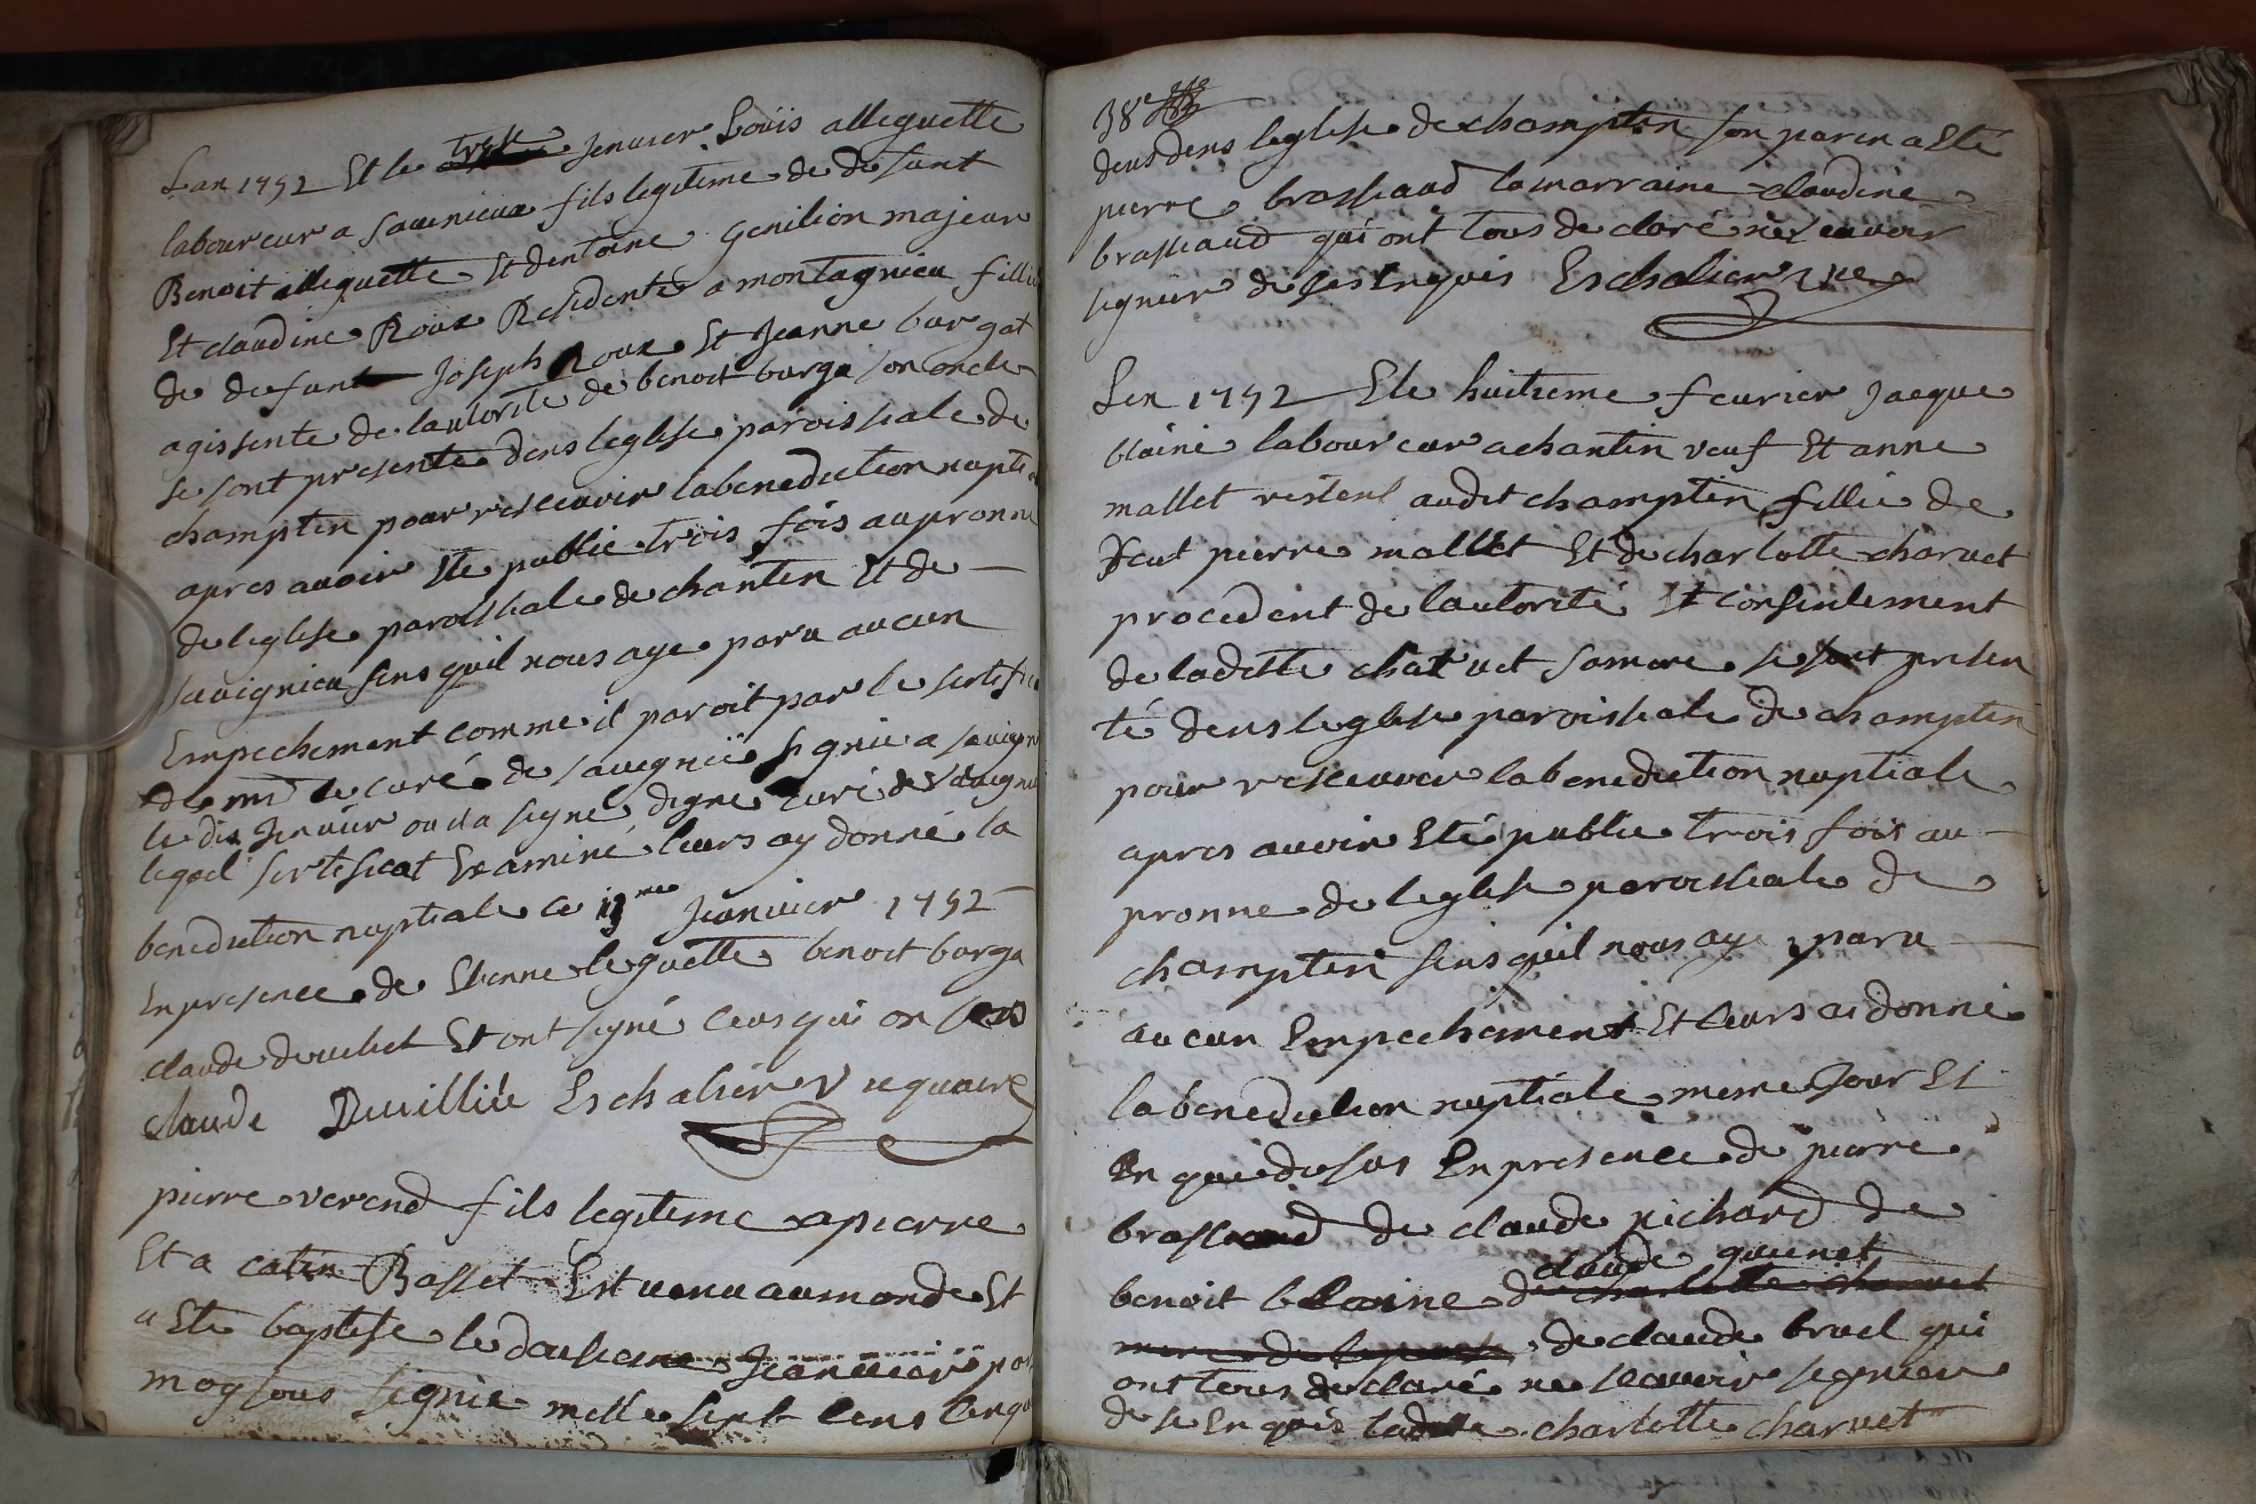 Lan 1752 Et le treize Jenvier Louis alleguette
laboureur a sauenieux fils legiteme de defunt
Benoit alleguette Et dentoine Genilion majeur
Et claudine Roux Residente a montagnieu fillie
de defunt Joseph Roux Et Jeanne bargat
agissente de lautorite de benoit barga son oncle
se sont presente dens leglese paroissiale de
champten pour resceuoir labenediction nupti
apres auoir Ete publie trois fois aupronne
de leglese paroissiale de chanten Et de
sauignieu sens quil nous aye paru aucun
Empechement comme il paroit par le sertific
de mr le curé de sauegnieu signie a sauign
le dix Jenvier ou il a segne degne curé de sauegnie
leqoel sertificat Examiné leurs ay donné la
benediction nuptiale ce 13me Jeanvier 1752
En presence de Etienne leguette benoit barga
claude deuilliet Et ont segné ceus qui on sceu
claude Deuilliée Eschalier Viequaire
pierre verend fils legiteme a pierre
Et a caten Basset Est uenu aumonde Et
a Ete baptese le dousieme Jeanvier par
moy sous segnie melle sept cens cenqu
38e
deus dens leglese de champten son paren a Eté
pierre brasseaud lamarraine claudine
brasseaud qui ont tous declaré ne sceauoir
segnier de ces Enquis Eschalier vice
Len 1752 Ele huitieme feurier Jaeque
blaine laboureur a chanten veuf Et anne
mallet restent audit champten fillie de
feut pierre mallet Et de charlotte charuet
procedent de lautorité Et consentement
de ladette charuet samere se sont presen
té dens leglese paroissiale de champten
pour resceuoir labenediction nuptiale
apres auoir Eté publie trois fois au
pronne de leglese paroissiale de
champten sens quil nous aye paru
aucun Empechement Et leurs ai donné
labenediction nuptiale meme Jour Et
En que desus En presence de pierre
brasseaud de claude pichard de
claude quenet
benoit blaine de charlotte charuet
de claude bruel qui
ont tous declaré ne sceauoir segnier
de se Enquis ladette charlotte charuet